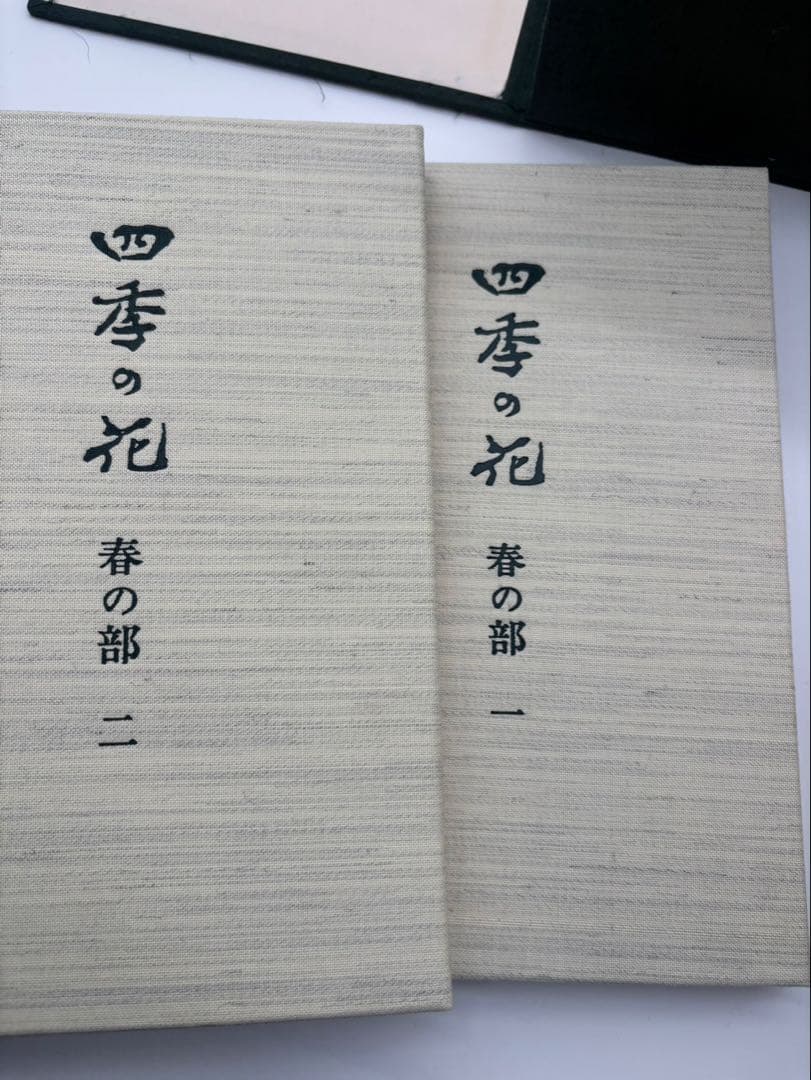 四季の花 春の部 一
四季の花 春の部 二